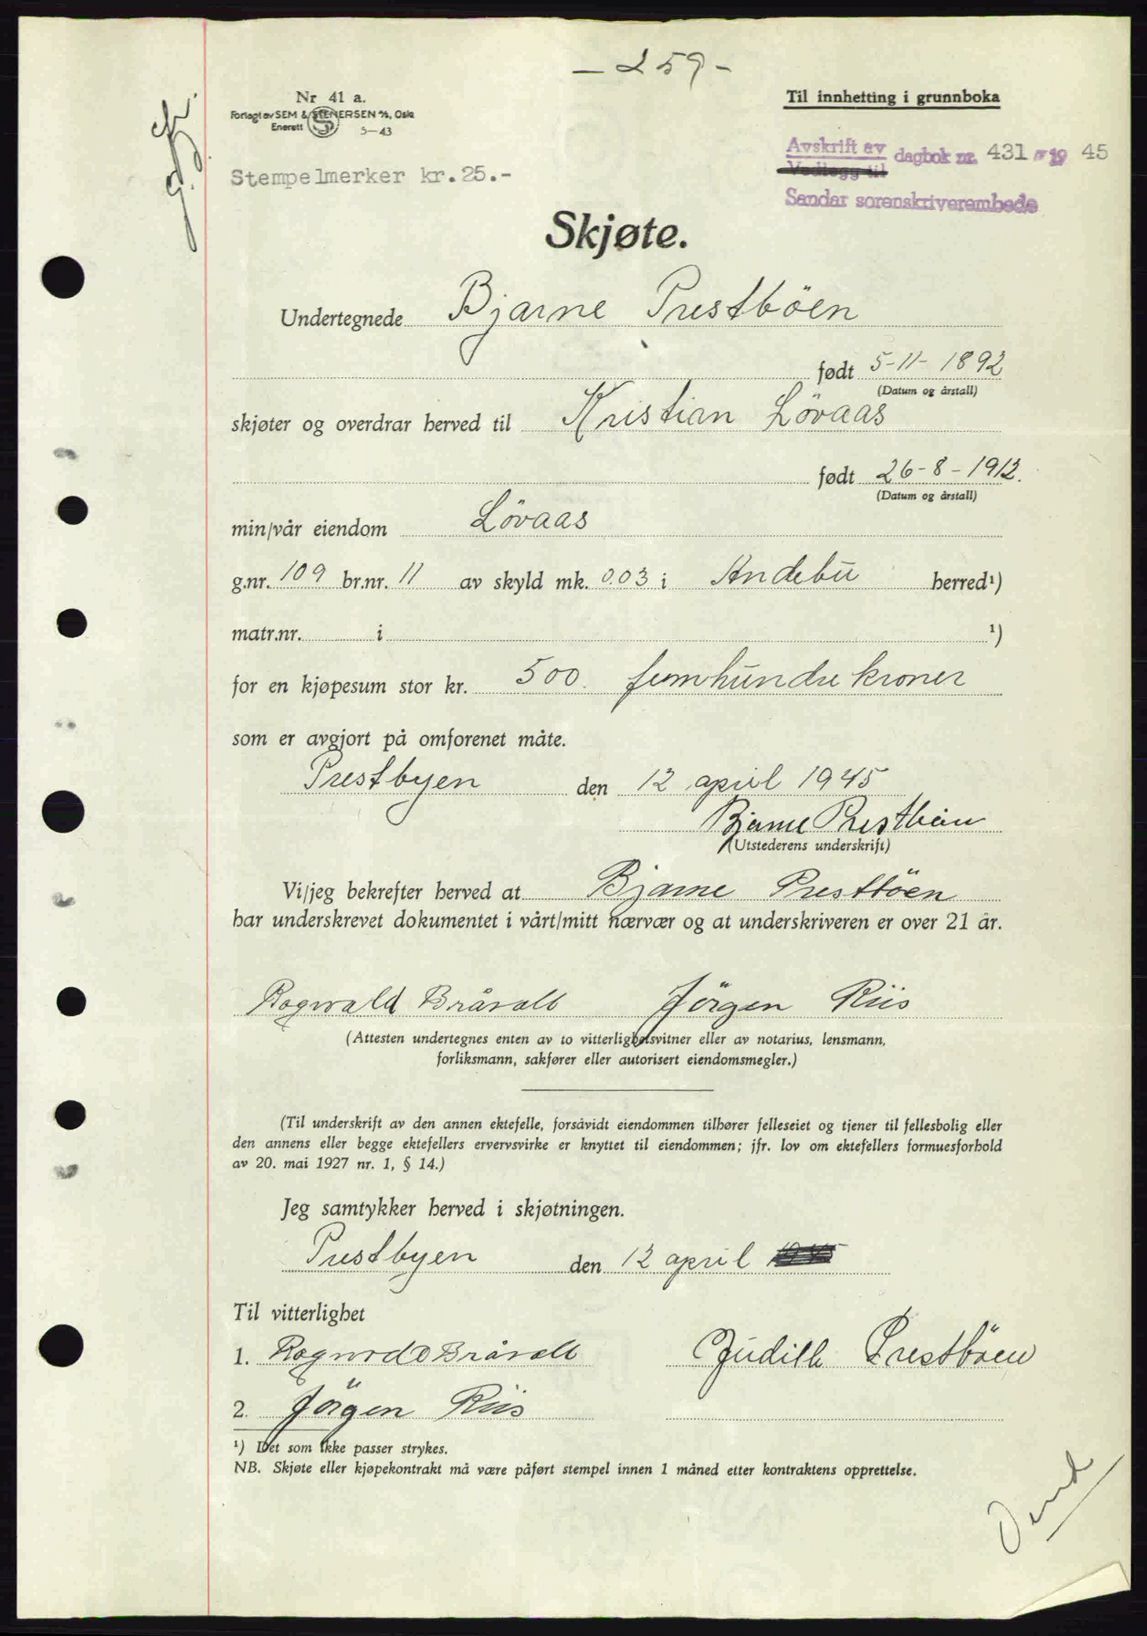 - 259 -
Nr 41 a.
Forlagt av SEM & STENERSEN A/S, Oslo
Enerett S 5-43
Til innhefting i grunnboka
Avskrift av
Vedlegg til
dagbok nr. 431 19 45
Sandar sorenskriverembede
Stempelmerker kr. 25.-
Skjøte.
Undertegnede Bjarne Prestböen
født 5-11-1892
(Datum og årstall)
skjøter og overdrar herved til Kristian Lövaas
født 26-8-1912.
(Datum og årstall)
min/vår eiendom Lövaas
g.nr. 109 br.nr. 11 av skyld mk. 0.03 i Andebu herred¹)
matr.nr. i ¹)
for en kjøpesum stor kr. 500. femhundre kroner
som er avgjort på omforenet måte.
Prestbyen den 12 april 1945
Bjarne Prestbøen
(Utstederens underskrift)
Vi/jeg bekrefter herved at Bjarne Prestböen
har underskrevet dokumentet i vårt/mitt nærvær og at underskriveren er over 21 år.
Ragnvald Bråvoll Jörgen Riis
(Attesten undertegnes enten av to vitterlighetsvitner eller av notarius, lensmann,
forliksmann, sakfører eller autorisert eiendomsmegler.)
(Til underskrift av den annen ektefelle, forsåvidt eiendommen tilhører felleseiet og tjener til fellesbolig eller
den annens eller begge ektefellers ervervsvirke er knyttet til eiendommen; jfr. lov om ektefellers formuesforhold
av 20. mai 1927 nr. 1, § 14.)
Jeg samtykker herved i skjøtningen.
Prestbyen den 12 april 1945
Til vitterlighet
1. Bråvoll Judith Prestböen
2. Jörgen Riis
¹) Det som ikke passer strykes.
NB. Skjøte eller kjøpekontrakt må være påført stempel innen 1 måned etter kontraktens opprettelse.